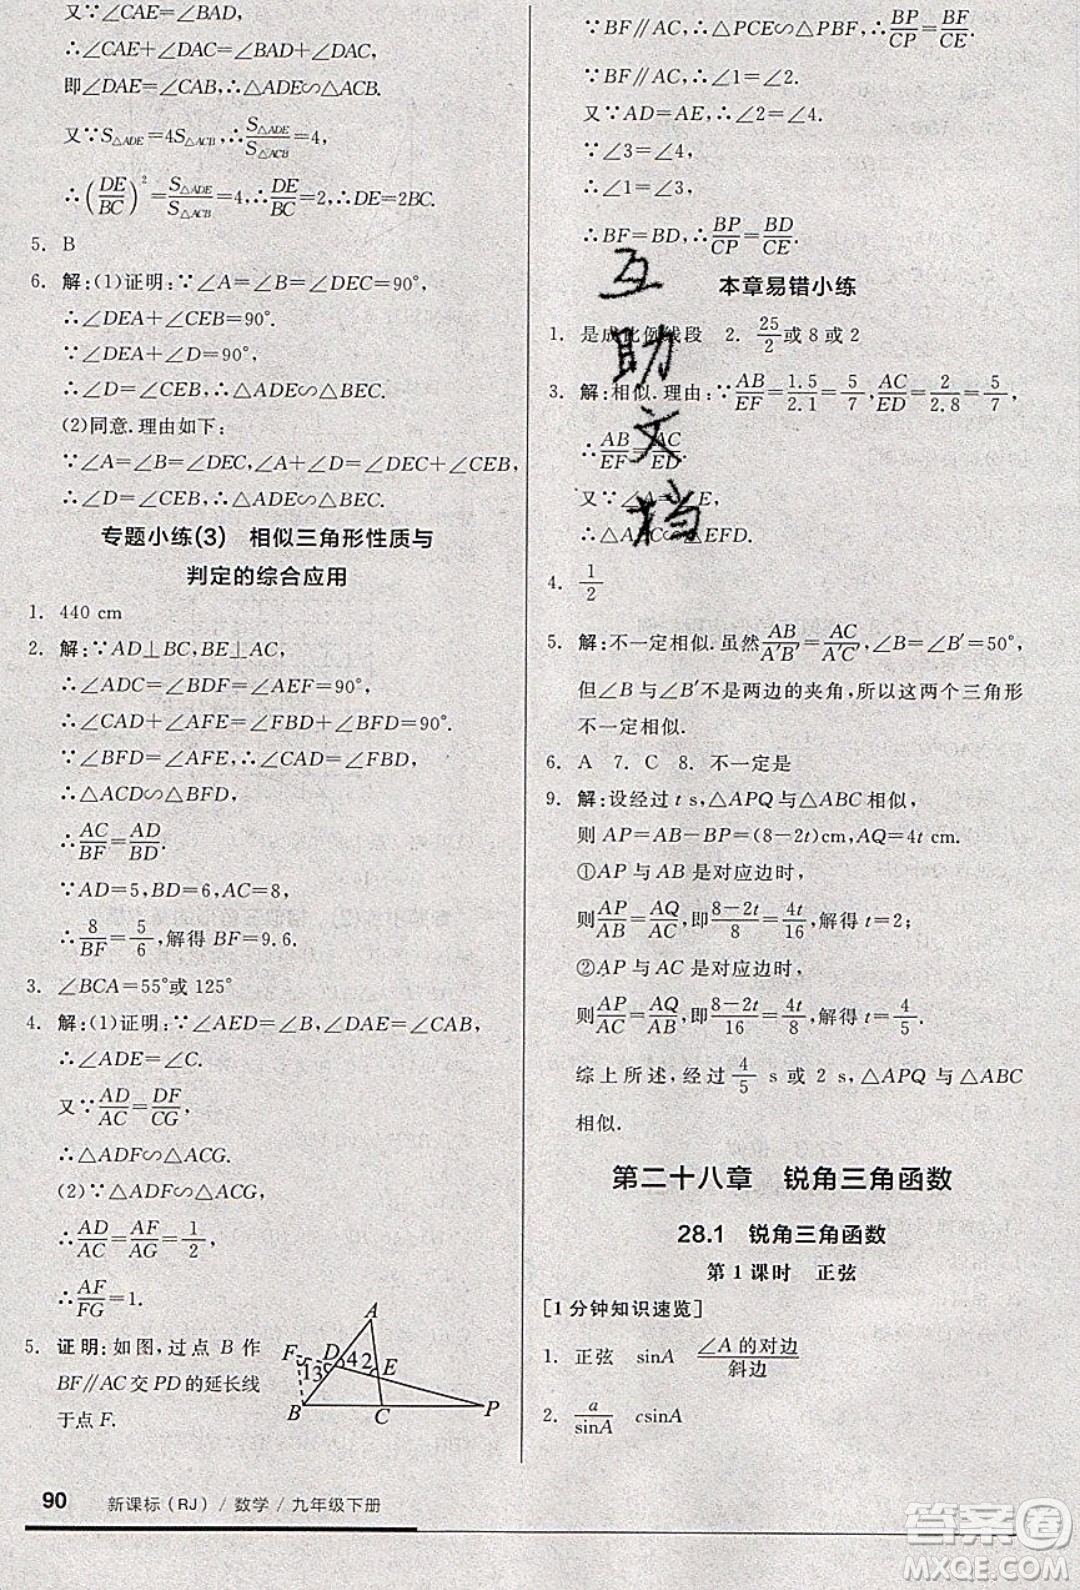 又∵∠CAE=∠BAD,
∴∠CAE+∠DAC=∠BAD+∠DAC,
即∠DAE=∠CAB,∴△ADE∽△ACB.
又∵S△ADE=4S△ACB,∴S△ADE/S△ACB=4,
∴(DE/BC)²=S△ADE/S△ACB=4,∴DE/BC=2,∴DE=2BC.
5. B
6. 解:(1)证明:∵∠A=∠B=∠DEC=90°,
∴∠DEA+∠CEB=90°.
∵∠DEA+∠D=90°,
∴∠D=∠CEB,∴△ADE∽△BEC.
(2)同意.理由如下:
∵∠A=∠B=∠DEC,∠A+∠D=∠DEC+∠CEB,
∴∠D=∠CEB,∴△ADE∽△BEC.
专题小练(3) 相似三角形性质与
判定的综合应用
1. 440 cm
2. 解:∵AD⊥BC,BE⊥AC,
∴∠ADC=∠BDF=∠AEF=90°,
∴∠CAD+∠AFE=∠FBD+∠BFD=90°.
∵∠BFD=∠AFE,∴∠CAD=∠FBD,
∴△ACD∽△BFD,
∴AC/BF=AD/BD.
∵AD=5,BD=6,AC=8,
∴8/BF=5/6,解得 BF=9.6.
3. ∠BCA=55°或 125°
4. 解:(1)证明:∵∠AED=∠B,∠DAE=∠CAB,
∴∠ADE=∠C.
又∵AD/AC=DF/CG,
∴△ADF∽△ACG.
(2)∵△ADF∽△ACG,
∴AD/AC=AF/AG=1/2,
∴AF/FG=1.
5. 证明:如图,过点 B 作
BF∥AC交PD的延长线
于点 F.
A
F D 4 2 E
1 3
B C P
∵BF∥AC,∴△PCE∽△PBF,∴BP/CP=BF/CE.
∵BF∥AC,∴∠1=∠2.
又∵AD=AE,∴∠2=∠4.
∵∠3=∠4,
∴∠1=∠3,
∴BF=BD,∴BP/CP=BD/CE.
本章易错小练
1. 是成比例线段 2. 25/2或 8 或 2
3. 解:相似.理由:∵AB/EF=1.5/2.1=5/7,AC/ED=2/2.8=5/7,
∴AB/EF=AC/ED.
又∵∠A=∠E,
∴△ABC∽△EFD.
4. 1/2
5. 解:不一定相似.虽然AB/A′B′=AC/A′C′,∠B=∠B′=50°,
但∠B 与∠B′不是两边的夹角,所以这两个三角形
不一定相似.
6. A 7. C 8. 不一定是
9. 解:设经过 t s,△APQ与△ABC相似,
则 AP=AB-BP=(8-2t)cm,AQ=4t cm.
①AP 与 AB 是对应边时,
则AP/AB=AQ/AC,即8-2t/8=4t/16,解得 t=2;
②AP 与 AC 是对应边时,
则AP/AC=AQ/AB,即8-2t/16=4t/8,解得 t=4/5.
综上所述,经过4/5 s 或 2 s,△APQ 与△ABC
相似.
第二十八章 锐角三角函数
28.1 锐角三角函数
第 1 课时 正弦
[1分钟知识速览]
1. 正弦 sinA ∠A的对边/斜边
2. a/sinA csinA
互
助
文
档
90 新课标(RJ)/数学/九年级下册
答案圈
MXQE.COM